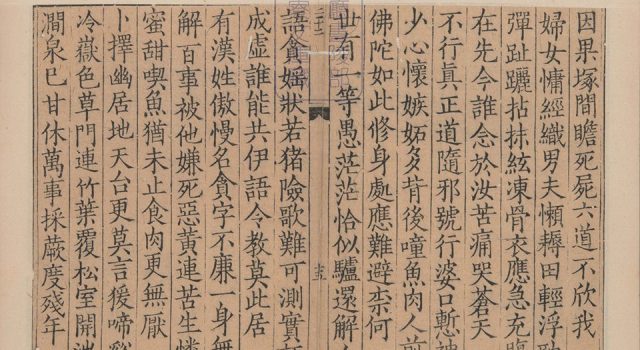 因果塚間瞻死屍六道不欣我
婦女慵經織男夫懶耨田輕浮
彈趾躧拈抹絃凍骨衣應急充腸
在先今誰念於汝苦痛哭蒼天
不行真正道隨邪號行婆口慙神
少心懷嫉妬多背後噇魚肉人前
佛陀如此修身處應難避柰何
世有一等愚茫茫恰似驢還解人
十五
語貪婬狀若猪險歌難可測實
成虛誰能共伊語令教莫此居
有漢姓傲慢名貪字不廉一身無
解百事被他嫌死惡黃連苦生憐
蜜甜喫魚猶未止食肉更無厭
卜擇幽居地天台更莫言猨啼谿
冷嶽色草門連竹葉覆松室開池
澗泉已甘休萬事採蕨度殘年